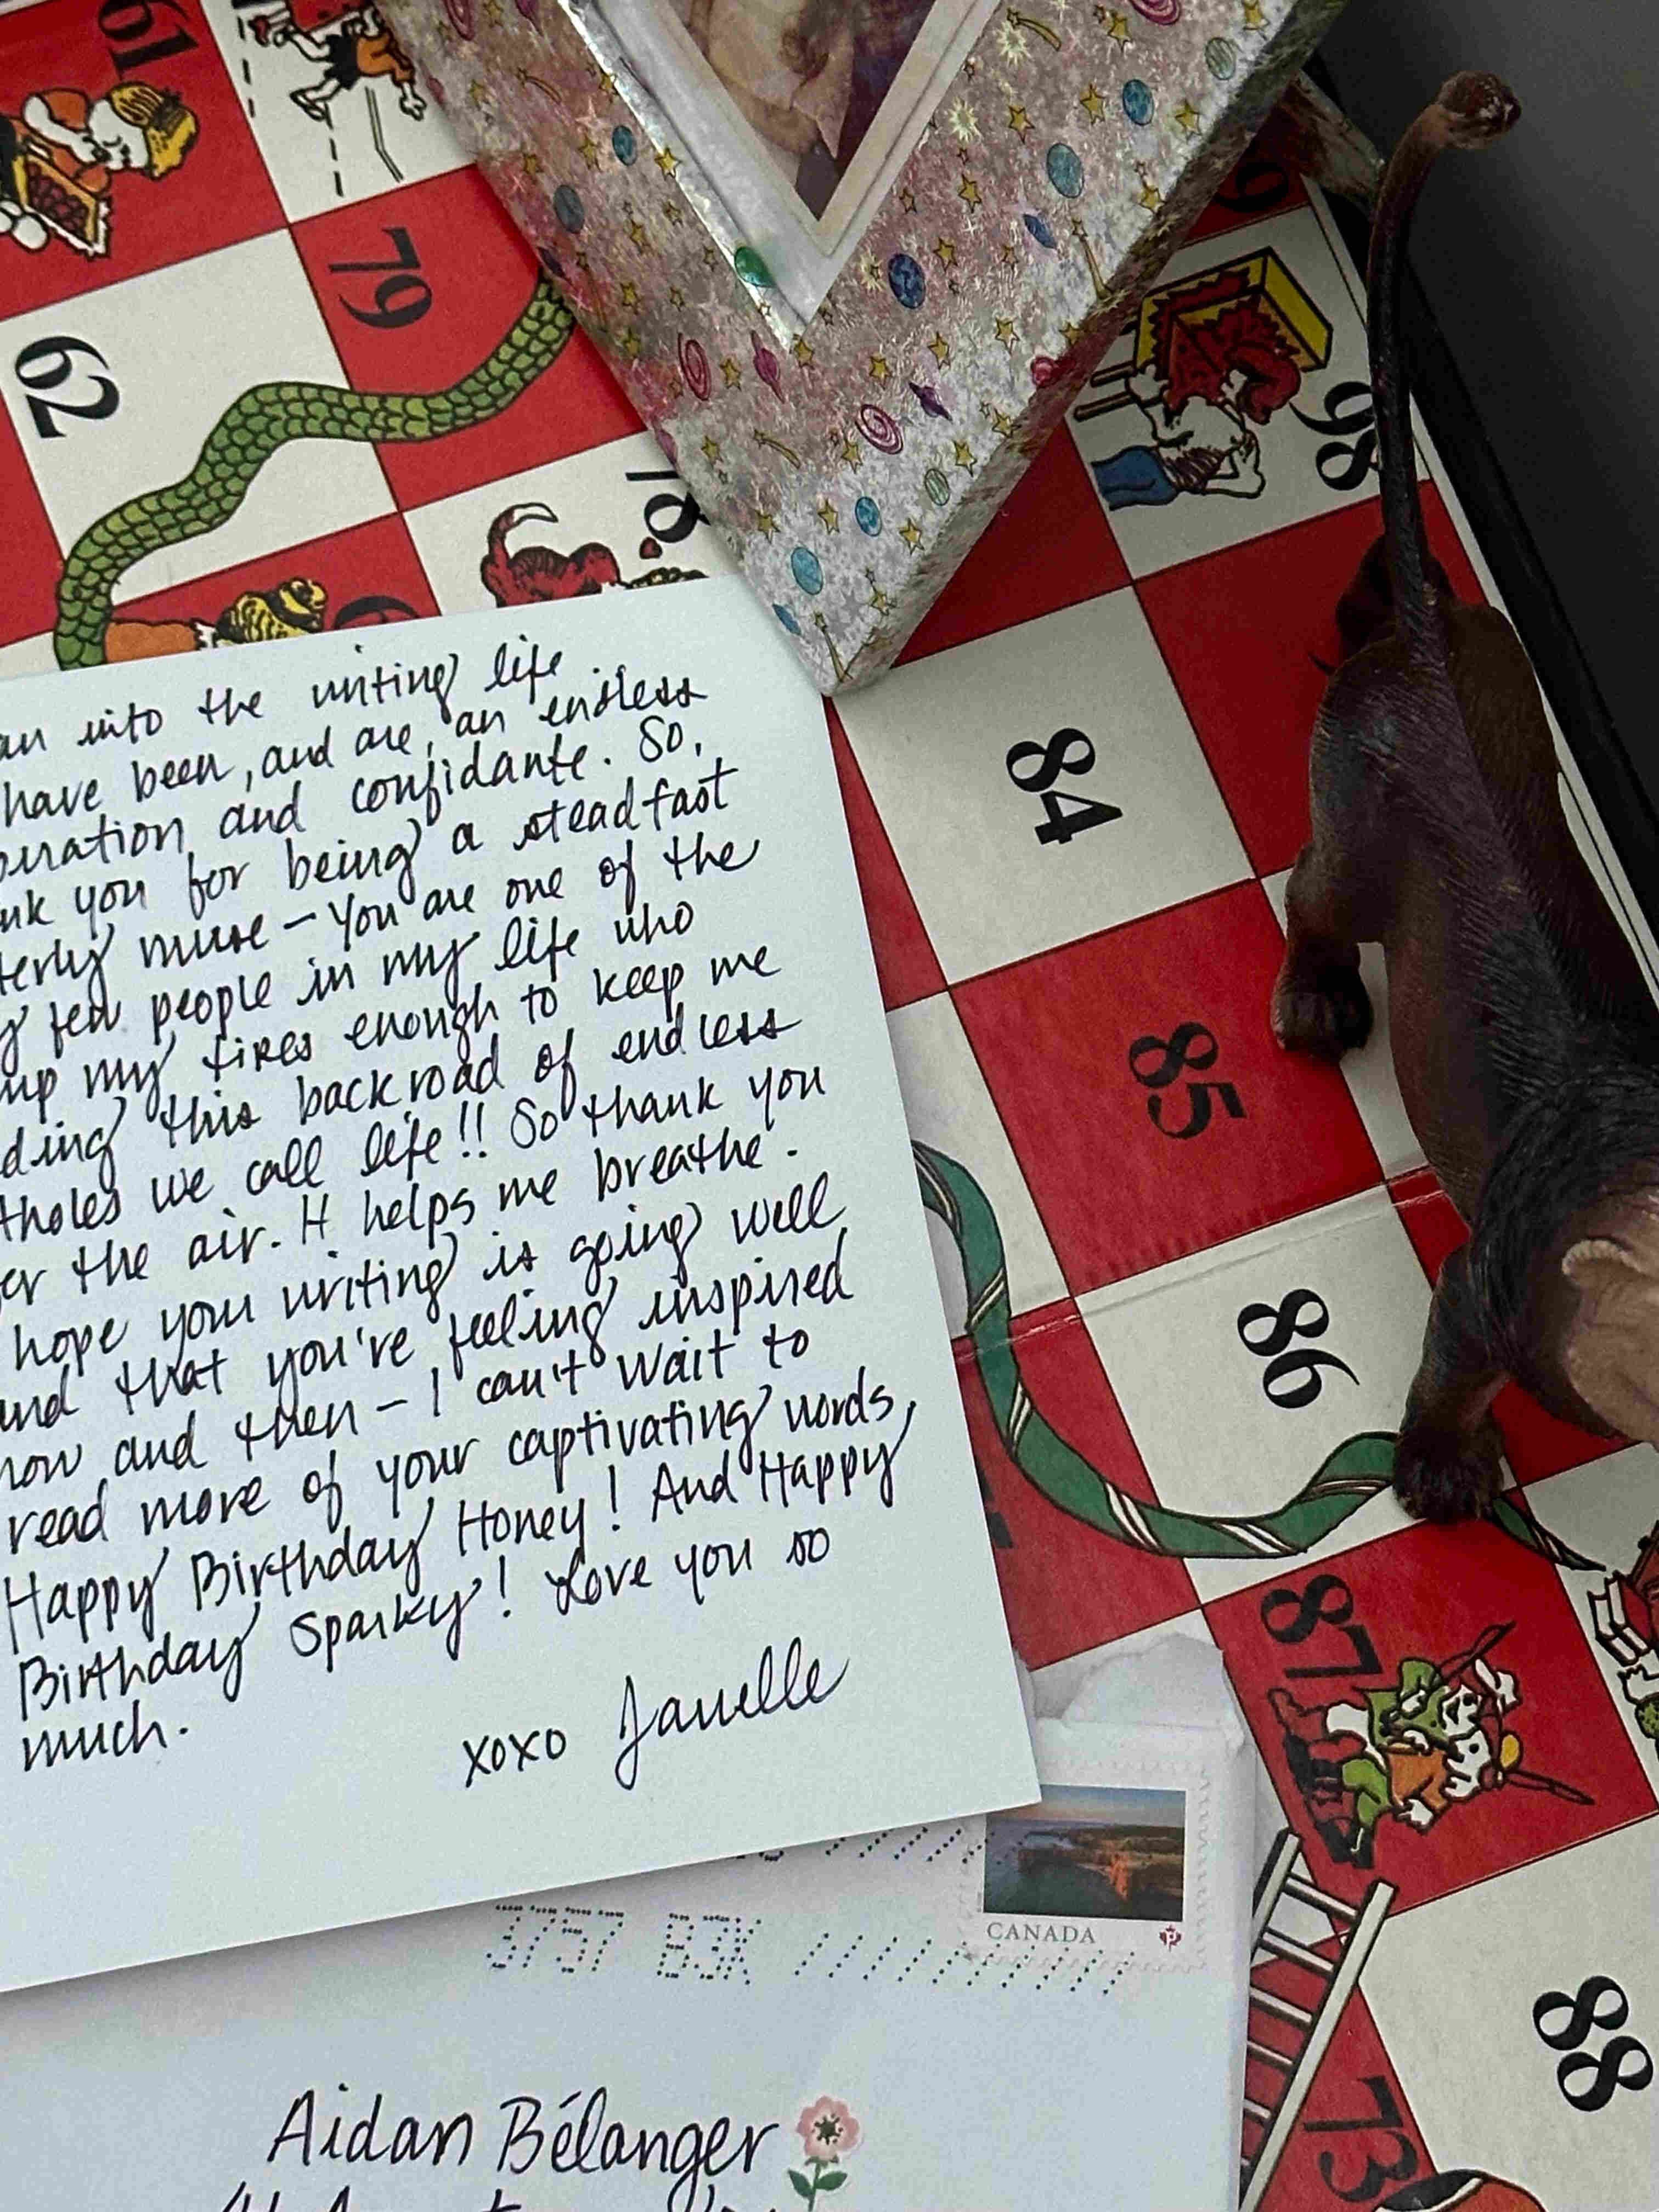 61
79
62
78
98
84
85
86
87
88
73
into the writing life
have been, and are, an endless
and confidante. So,
you for being a steadfast
muse – You are one of the
few people in my life who
my tires enough to keep me
this backroad of endless
we call life!! So thank you
the air. It helps me breathe.
hope your writing is going well
that you're feeling inspired
now and then – I can't wait to
read more of your captivating words,
Happy Birthday Honey! And Happy
Birthday Sparky! Love you so
much.
xoxo Janelle
CANADA
P
3757 B3K
Aidan Bélanger